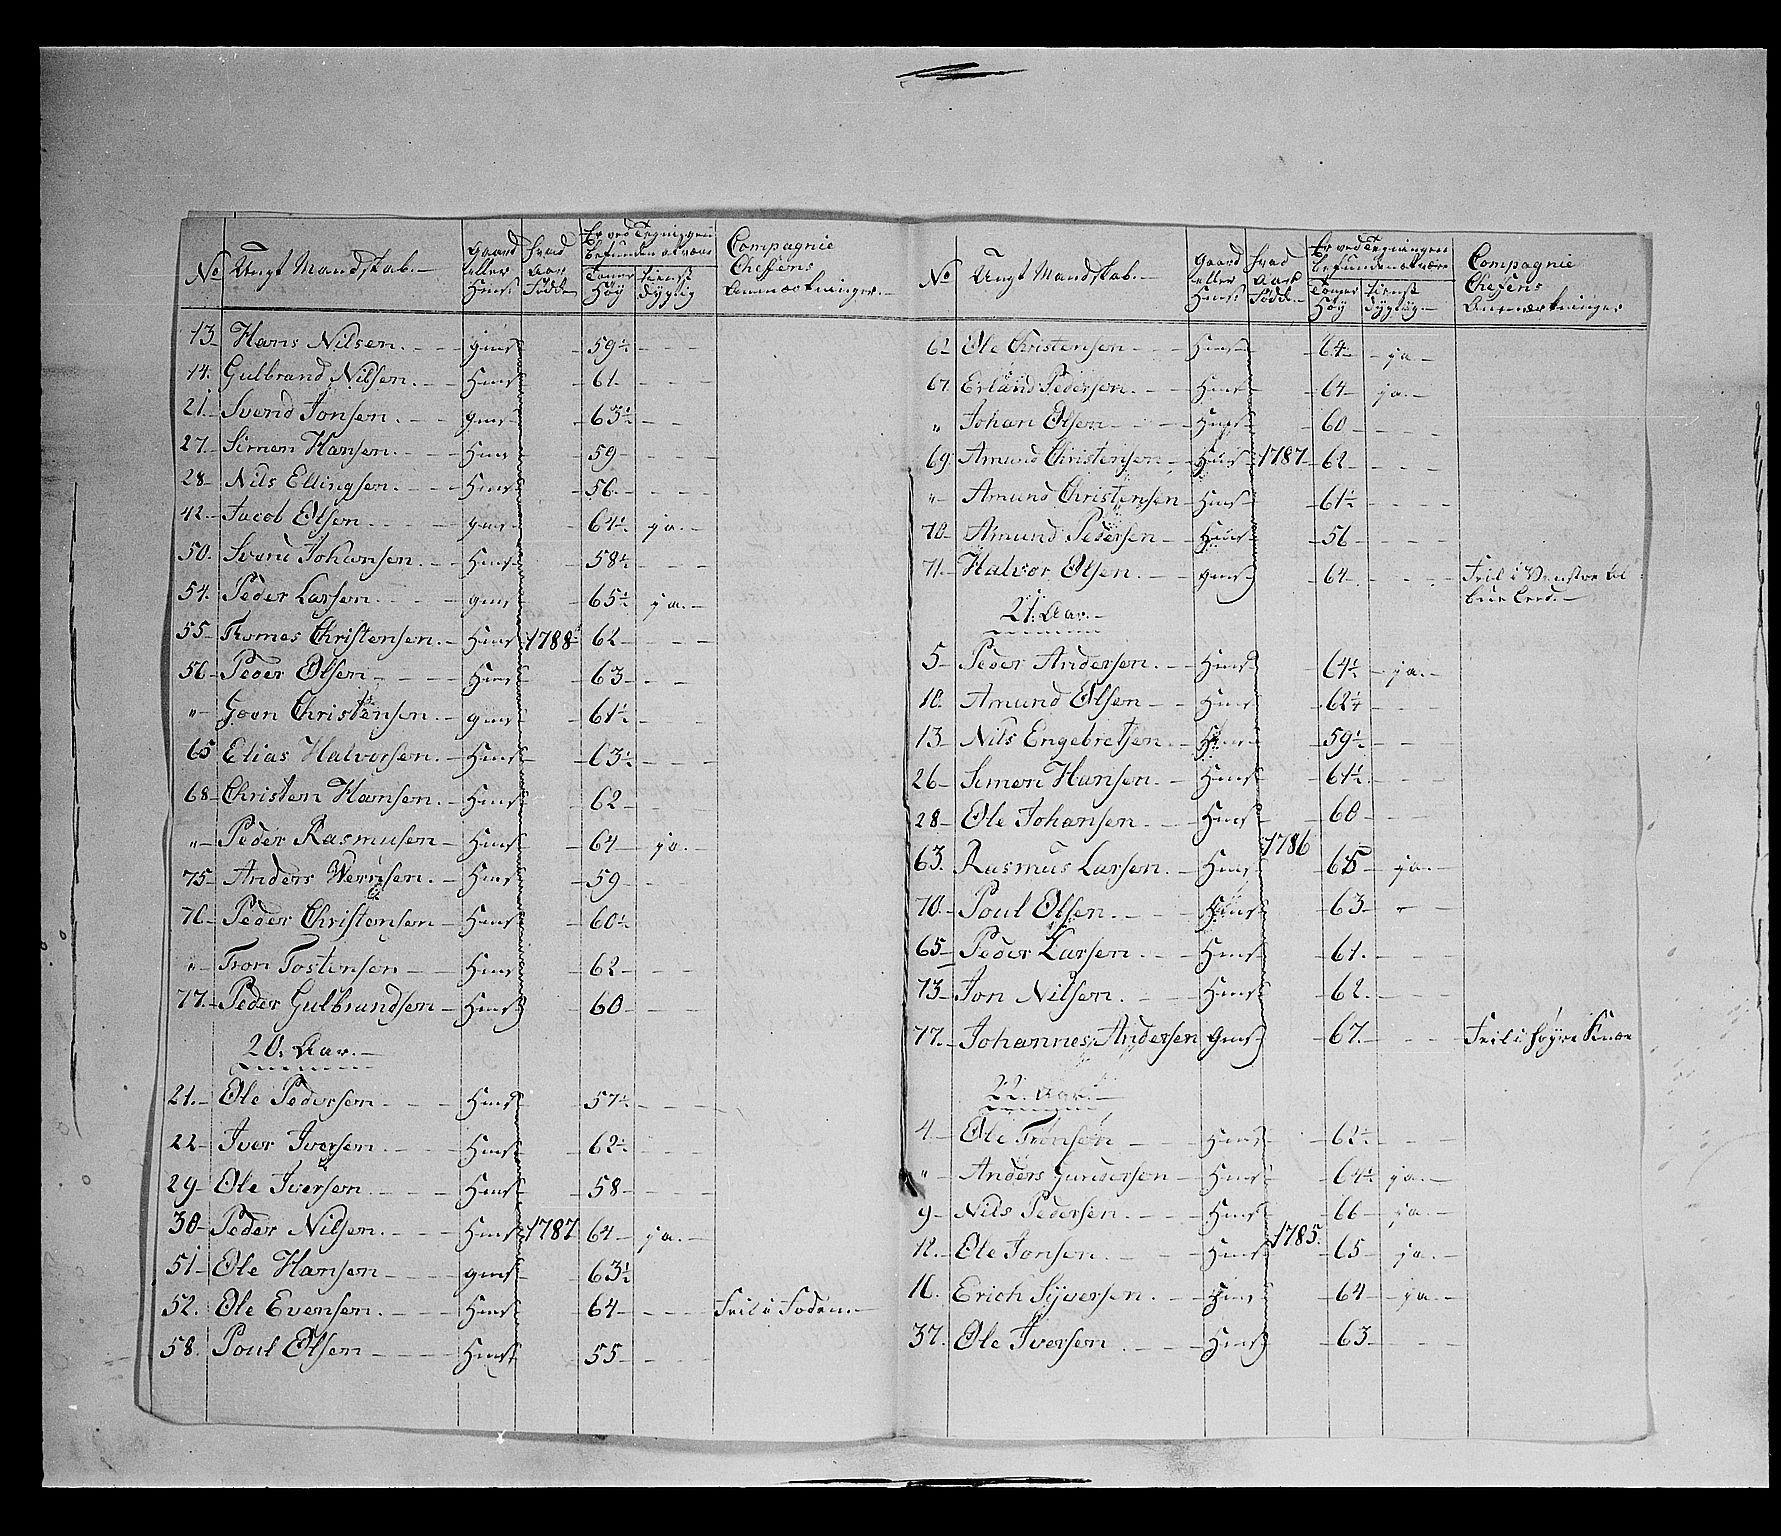 No Ungt Mandskab. Gaard eller Huus hvad Aar Fødde Er ved Tegningen befunden at være Tomer Høy tienst dygtig Compagnie Chefens Anmærkninger.
13 Hans Nilsen. gaard 59½
14. Gulbrand Nilsen. Huus 61
21. Svend Jonsen. gaard 63½
27. Simen Hansen. Huus 59
28 Nils Ellingsen. Huus 56
42 Jacob Olsen gaard 64½ ja.
50. Svend Johansen. Huus 58½
54. Peder Larsen. gaard 65½ ja.
55 Thomes Christensen. Huus 1788 62
56 Peder Olsen Huus 63
" Goen Christensen. gaard 61½
65 Elias Halvorsen. Huus 63½
68 Christen Hansen. Huus 62
" Peder Rasmusen Huus 64 ja.
75 Anders Wernsen. Huus 59
76 Peder Christensen Huus 60½
" Tron Tostensen Huus 62
77. Peder Gulbrandsen Huus 60
20. Aar.
21. Ole Pedersen Huus 57½
22 Iver Iversen. Huus 62½
29 Ole Iversen. Huus 58
30 Peder Nilsen. Huus 1787 64 ja.
51 Ole Hansen gaard 63½
52. Ole Evensen. Huus 64 Feil i Foden.
58. Poul Olsen Huus 55
No Ungt Mandskab. Gaard eller Huus hvad Aar Fødde. Er ved Tegningen befunden at være Tomer Høy tienst dygtig Compagnie Chefens Anmærkninger
62 Ole Christensen Huus 64 ja
67. Erland Pedersen. Huus 64 ja.
" Johan Olsen Huus 60
69 Amund Christensen Huus 1787 62
" Amund Christensen Huus 61½
70 Amund Pedersen Huus 56
71. Halvor Olsen. gaard 64 Feil i Venstre al
bue Leed.
21. Aar.
5 Peder Andersen. Huus 64½ ja.
10. Amund Olsen Huus 62¼
13 Nils Engebretsen Huus 59½
26 Simen Hansen Huus 61½
28 Ole Johansen Huus 60
1786
63. Rasmus Larsen. Huus 65 ja.
70. Poul Olsen. Huus 63
65 Peder Larsen. Huus 61.
73 Jon Nilsen. Huus 62.
77. Johannes Andersen Gaard 67. Feil i høyre Knæe
22. Aar.
4. Ole Tronsen Huus 62½
" Anders Gundersen Huus 64½ ja.
9 Nils Pedersen. Huus 66 ja.
1785.
12. Ole Jonsen. Huus 65 ja.
16. Erich Syversen. Huus 64 ja.
37. Ole Iversen Huus 63